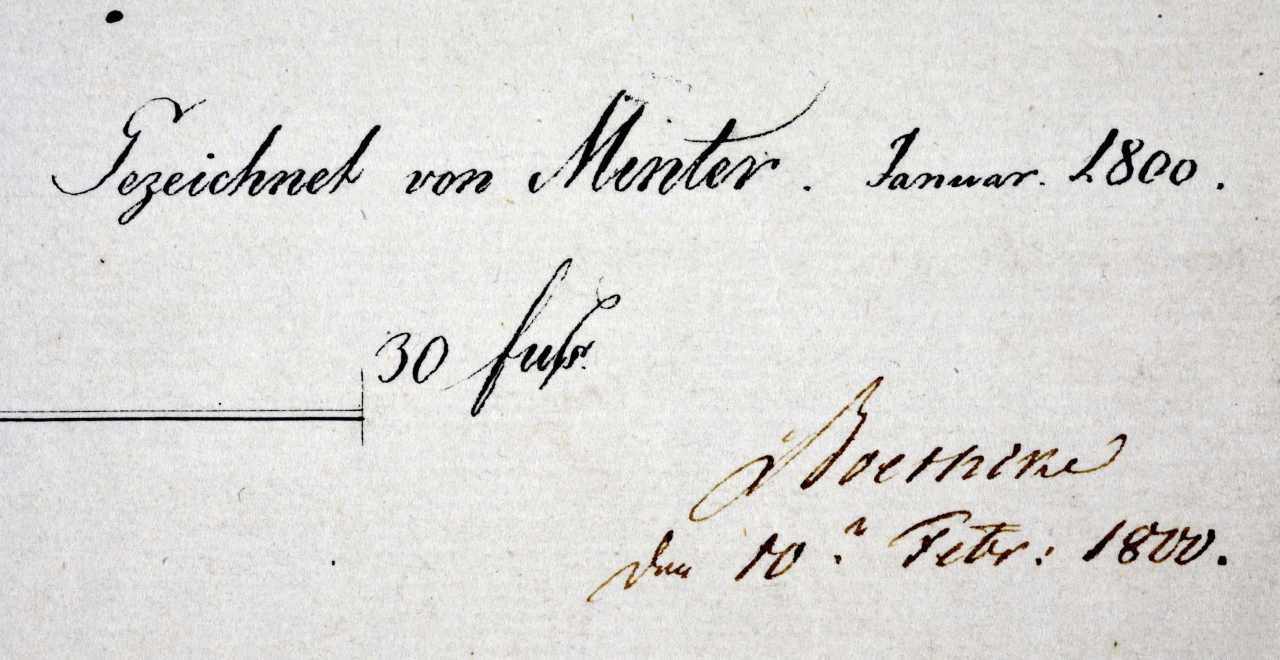 Gezeichnet von Minter. Januar. 1800.
30 fuſs.
den 10.n Febr: 1800.